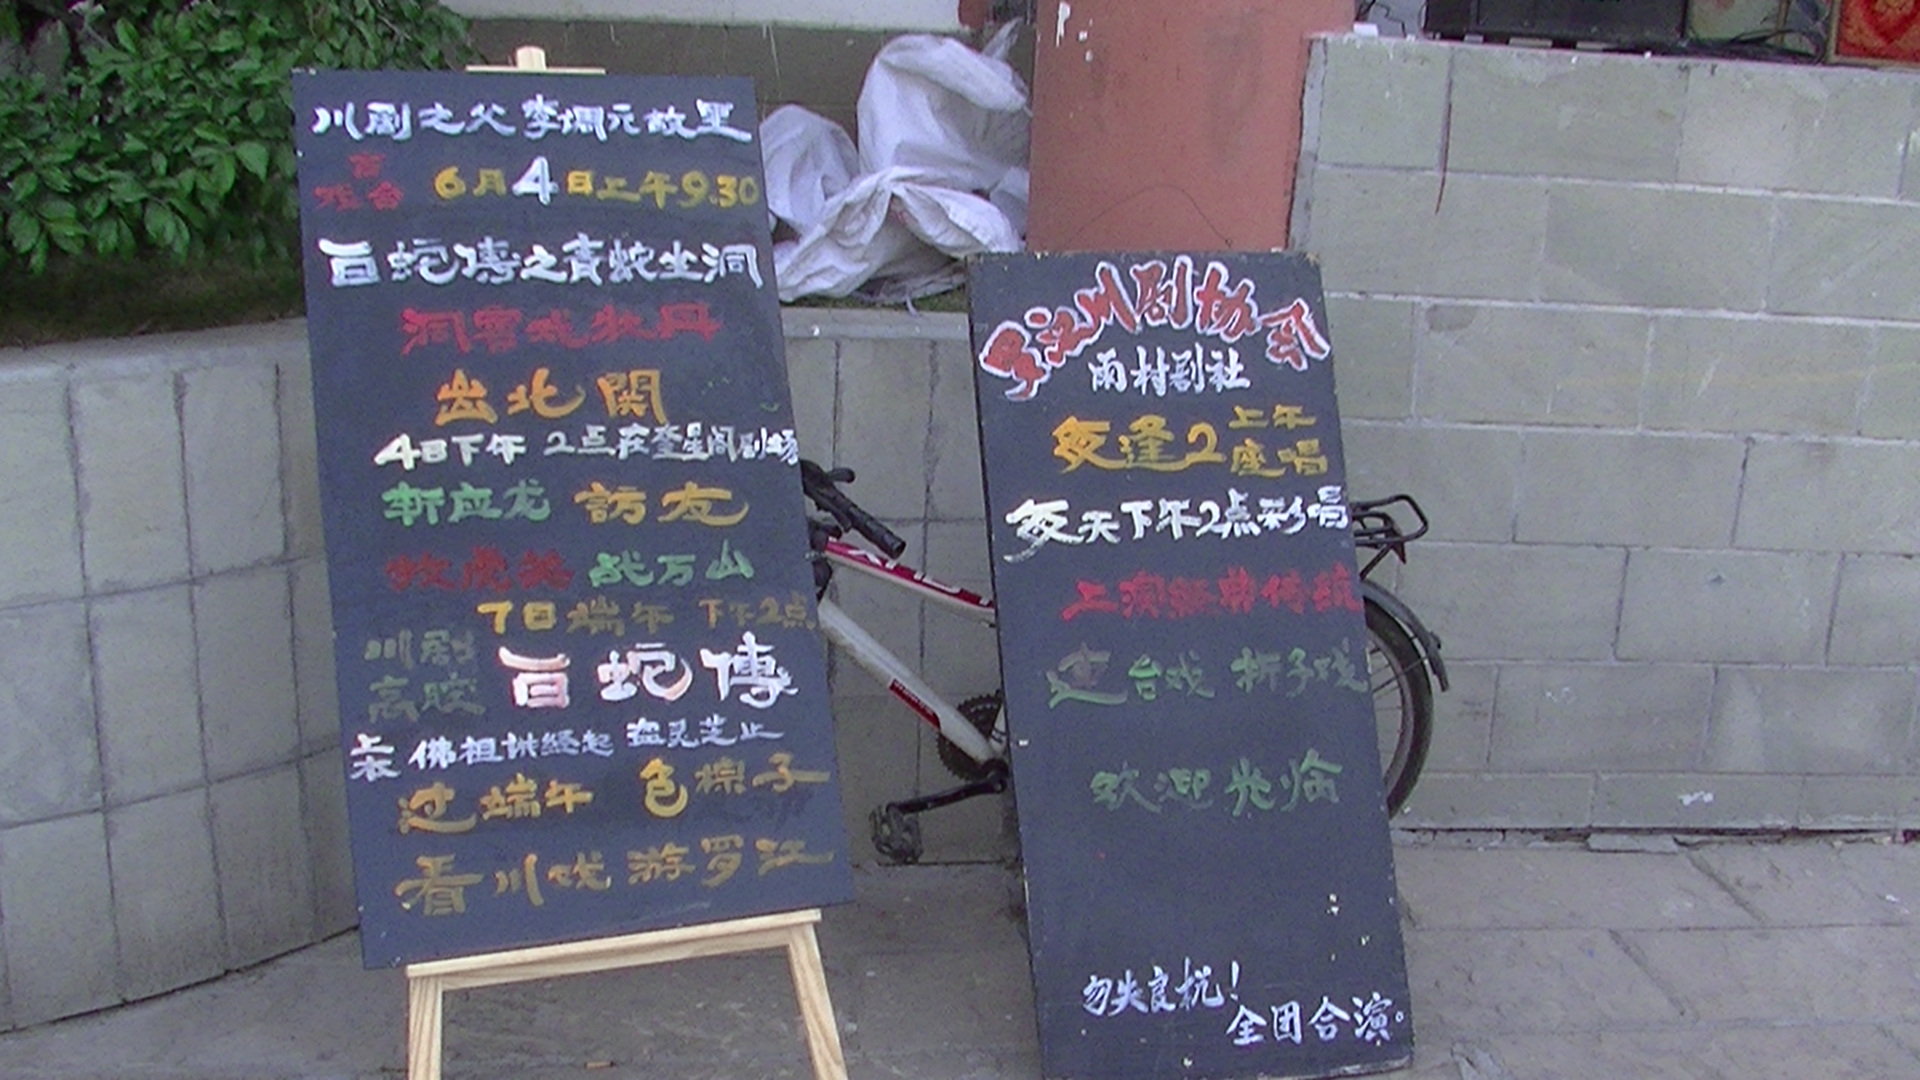 川剧之父李调元故里
6月4日上午9.30
白蛇傳之青蛇坐洞
洞宾戏牡丹
出北関
4日下午 2点在奎星阁剧场
斩应龙 訪友
牧虎关 战万山
7日端午 下午2点
川剧
高腔
白蛇傳
上衣 佛祖讲经起 盗灵芝止
过端午 包粽子
看川戏 游罗江
罗江川剧协会
雨村剧社
每逢2 上午
座唱
每天下午2点彩唱
上演经典传统
连台戏 折子戏
欢迎光临
勿失良机!
全团合演。